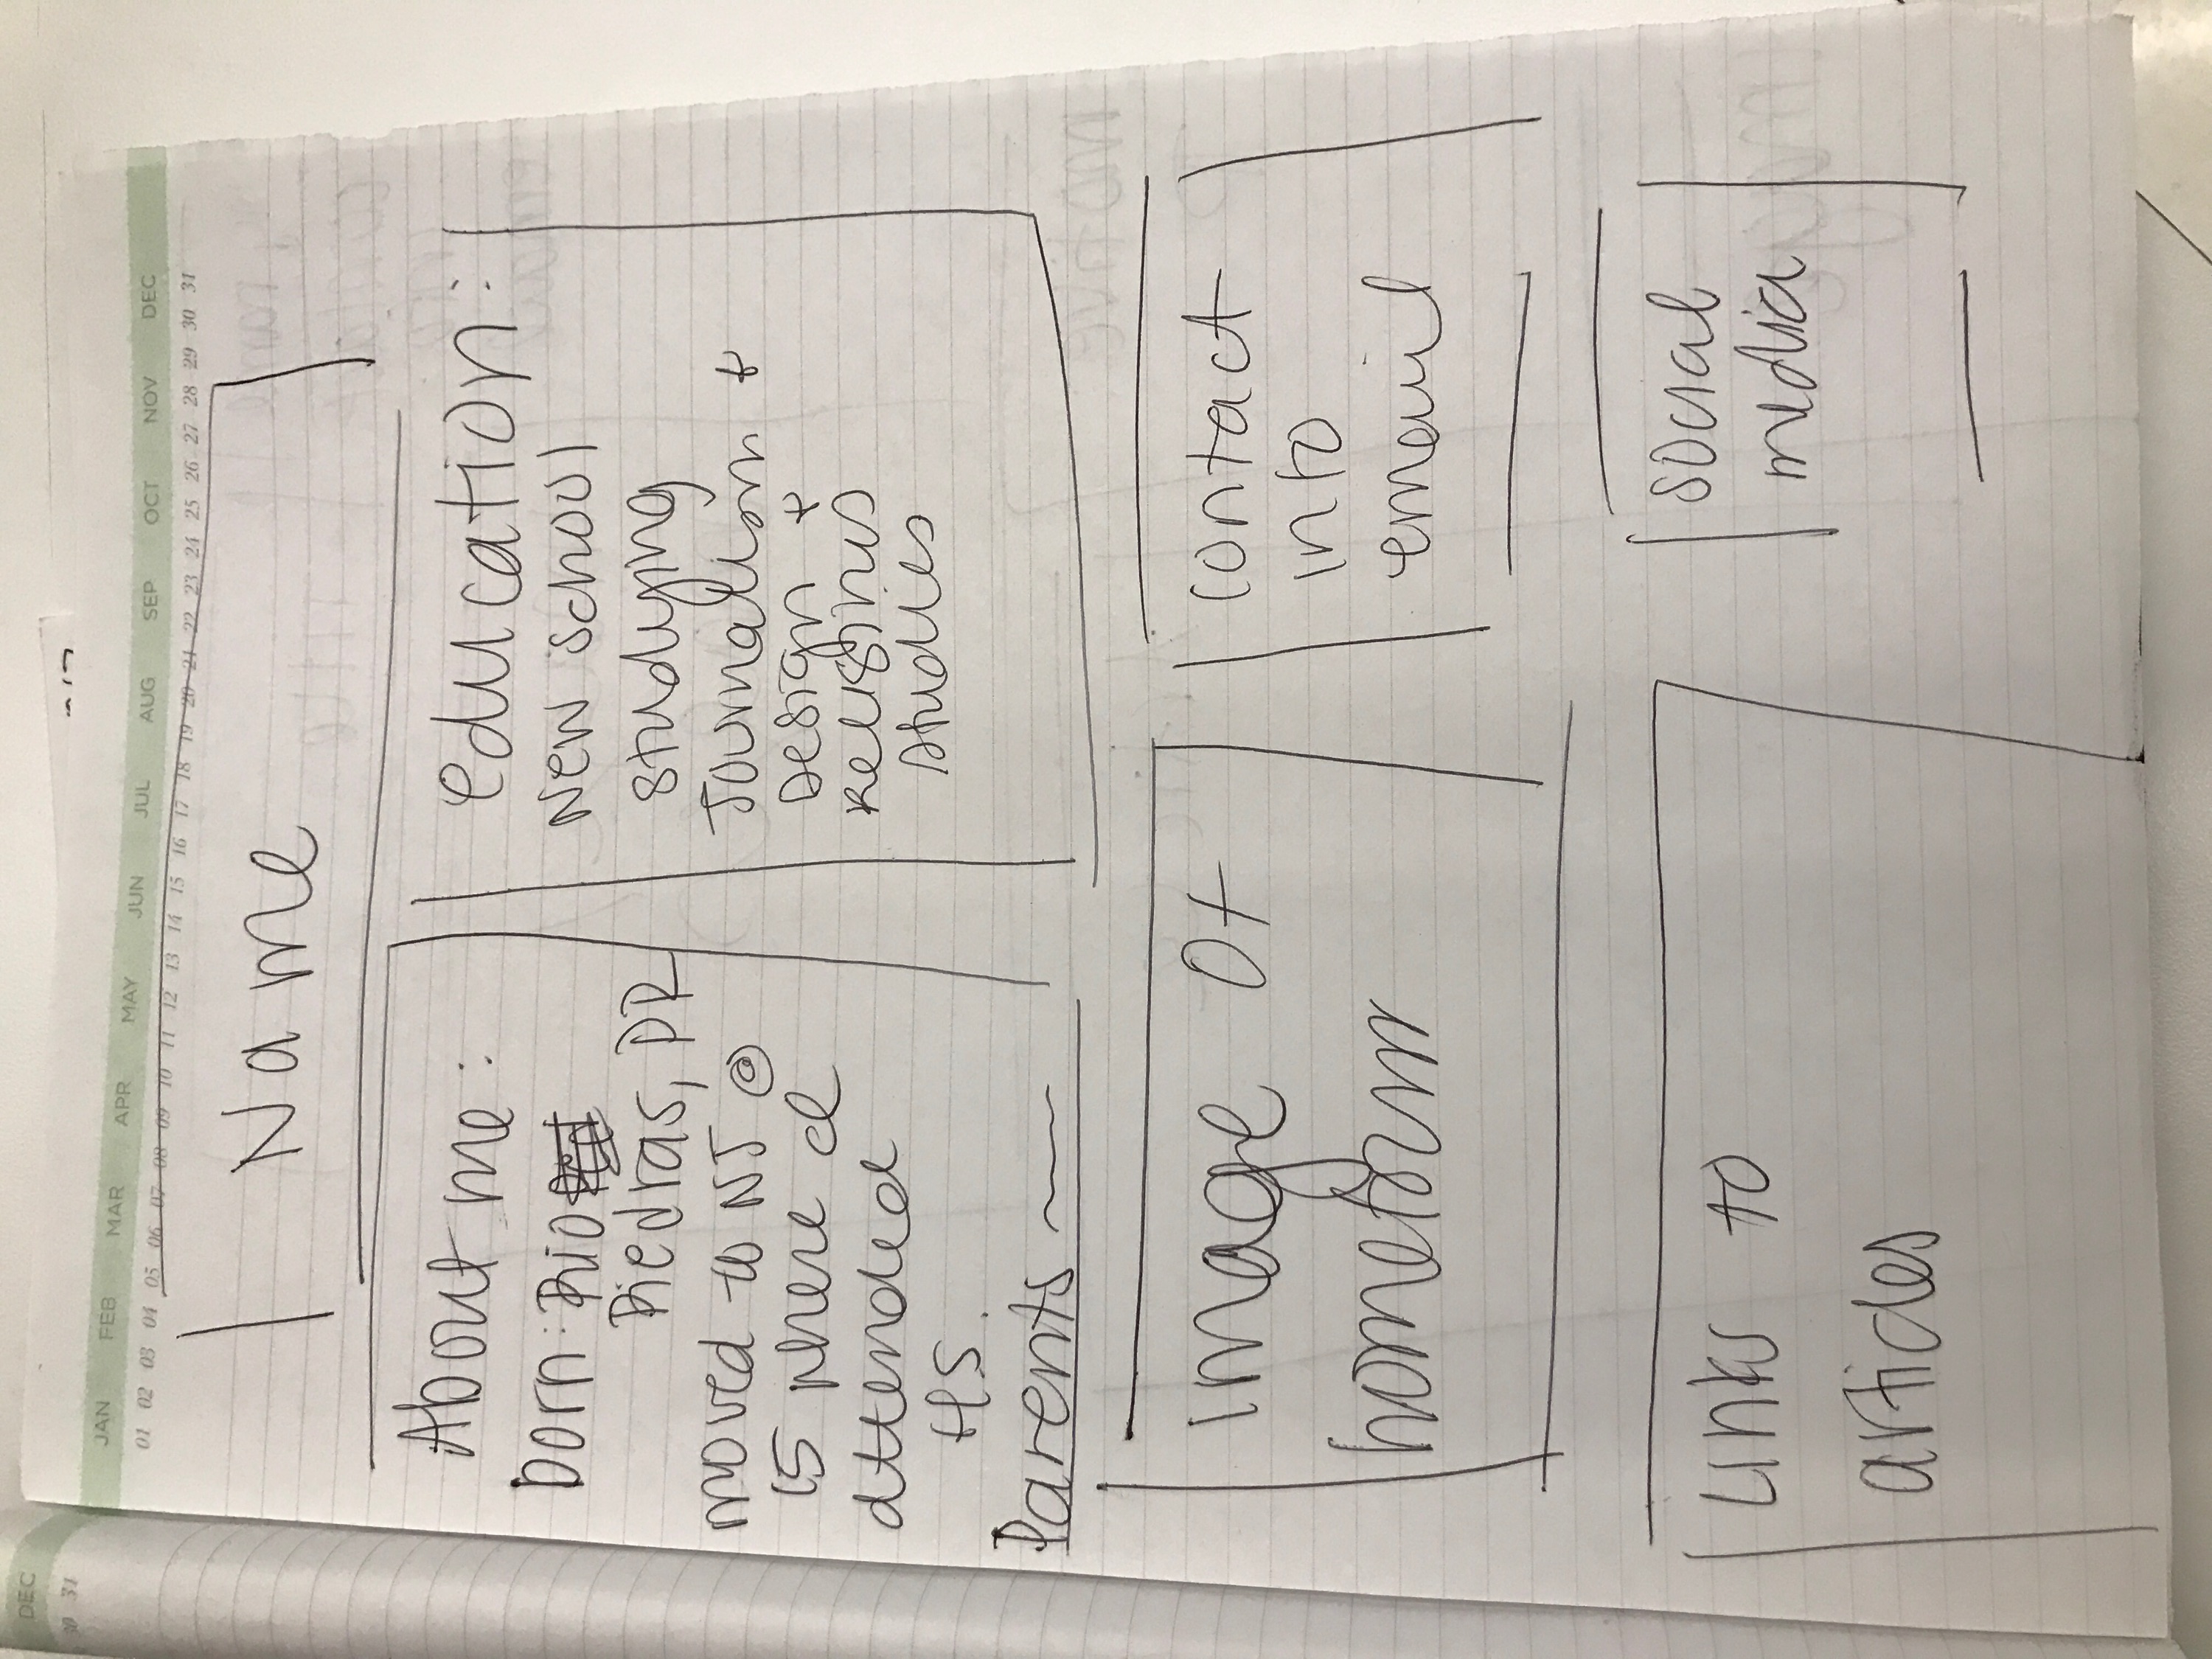 DEC
30 31
JAN FEB MAR APR MAY JUN JUL AUG SEP OCT NOV DEC
01 02 03 04 05 06 07 08 09 10 11 12 13 14 15 16 17 18 19 20 21 22 23 24 25 26 27 28 29 30 31
Name
About me:
Born: Rio
Piedras, PR
moved to NJ @
15 where I
attended
HS.
Parents
education:
New school
studying
Journalism +
Design +
Religious
studies
image of
hometown
contact
info
email
Links to
articles
social
media